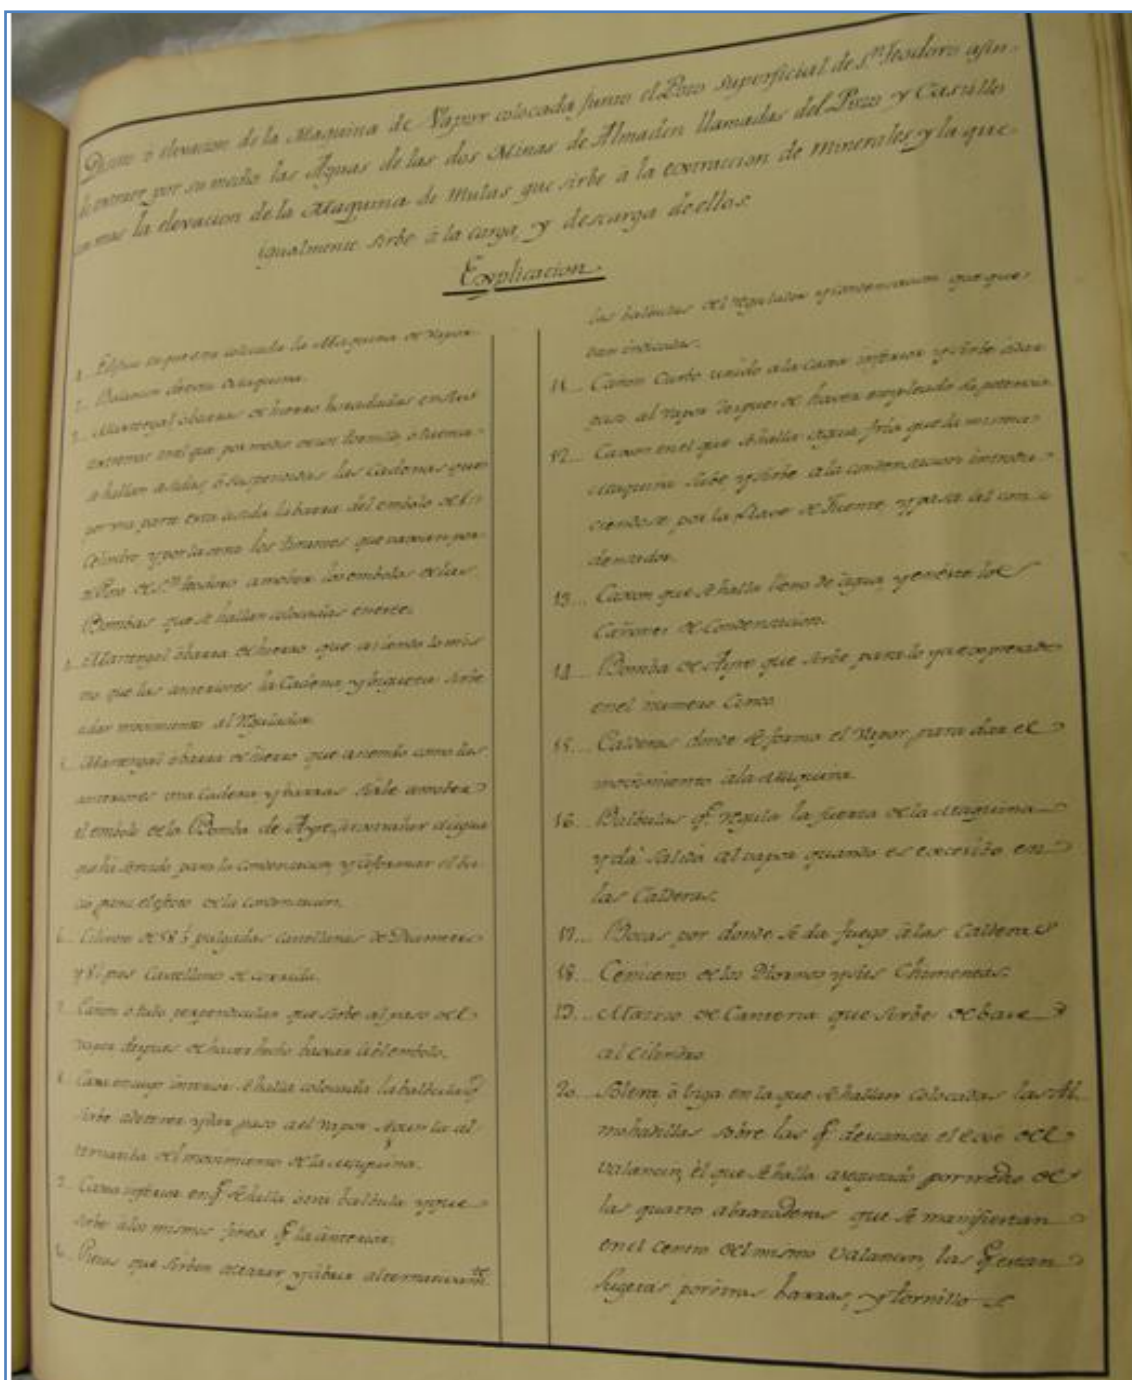 Diseño ó elevacion de la Maquina de Vapor colocada junto el Pozo superficial de Sn. Teodoro afin
de extraer por su medio las Aguas de las dos Minas de Almaden llamadas del Pozo y Castillo
la elevacion de la Maquina de Mulas que sirbe à la extraccion de Minerales y la que
igualmente sirbe à la carga, y descarga de ellos
Explicacion.
1.. Edificio en que esta colocada la Maquina de Vapor.
2.. Balancin de esta Maquina.
3.. Martengal ò barras de hierro horadadas en sus
extremos en el que por medio de un tornillo ò tuerca
se hallan asidas, ò suspendidas las Cadenas que
por una parte esta asida la barra del embolo del
Cilindro y por la otra los tirantes que van por
el Pozo de Sn. Teodoro a mober los embolos de las
Bombas que se hallan colocadas en este.
Martengal ò barra de hierro que asiendo lo mis
mo que las anteriores la Cadena y sirbe
a dar movimiento al Regulador.
Martengal ò barra de hierro que asiendo como las
anteriores una Cadena y barras sirbe a mober
el embolo de la Bomba de Ayre, el agua
que ha servido para la Condensacion y à formar el ba
cio para el efecto de la condensacion.
6.. Cilindro de 58 ½ pulgadas Castellanas de Diametro
y pies Castellanos de corrida.
7.. Cañon ò tubo perpendicular que sirbe al paso del
vapor despues de haver hecho baxar el embolo.
8.. Caxa en cuyo interior se halla colocada la balbula q.
sirbe a detener y dar paso a el vapor segun la al
ternativa del movimiento de la Maquina.
9.. Caxa inferior en q. se halla otra balbula y que
sirbe a los mismos fines q. la anterior.
Piezas que sirben a cerrar y à abrir alternativamte.
las balbulas del regulador y condensacion que que
dan indicadas.
11... Cañon Curbo unido a la caxa inferior y sirbe a dar
paso al vapor despues de haver empleado su potencia
12.. Caxon en el que se halla agua fria que la misma
Maquina sube y sirbe a la condensacion introdu
ciendose por la llave de Fuente, y pasa al con
densador.
13... Caxon que se halla lleno de agua, y en este los
Cañones de Condensacion.
14... Bomba de Ayre que sirbe para lo ya expresado
en el numero Cinco
15... Calderas donde se forma el Vapor para dar el
movimiento à la Maquina.
16... Balbulas q. regula la fuerza de la Maquina
y dà salida al vapor quando es excesibo en
las Calderas.
17... Bocas por donde se da fuego à las Calderas
18... Cenicero de los Hornos y sus Chimeneas.
19... Macizo de Canteria que sirbe de base
al Cilindro
20... Solera ò biga en la que se hallan colocadas las Al
mohadillas sobre las q. descansa el exe del
Valancin, el que se halla asegurado por medio de
las quatro abrazaderas que se manifiestan
en el centro del mismo Valancin, las q. estan
sugetas por otras barras, y tornillos